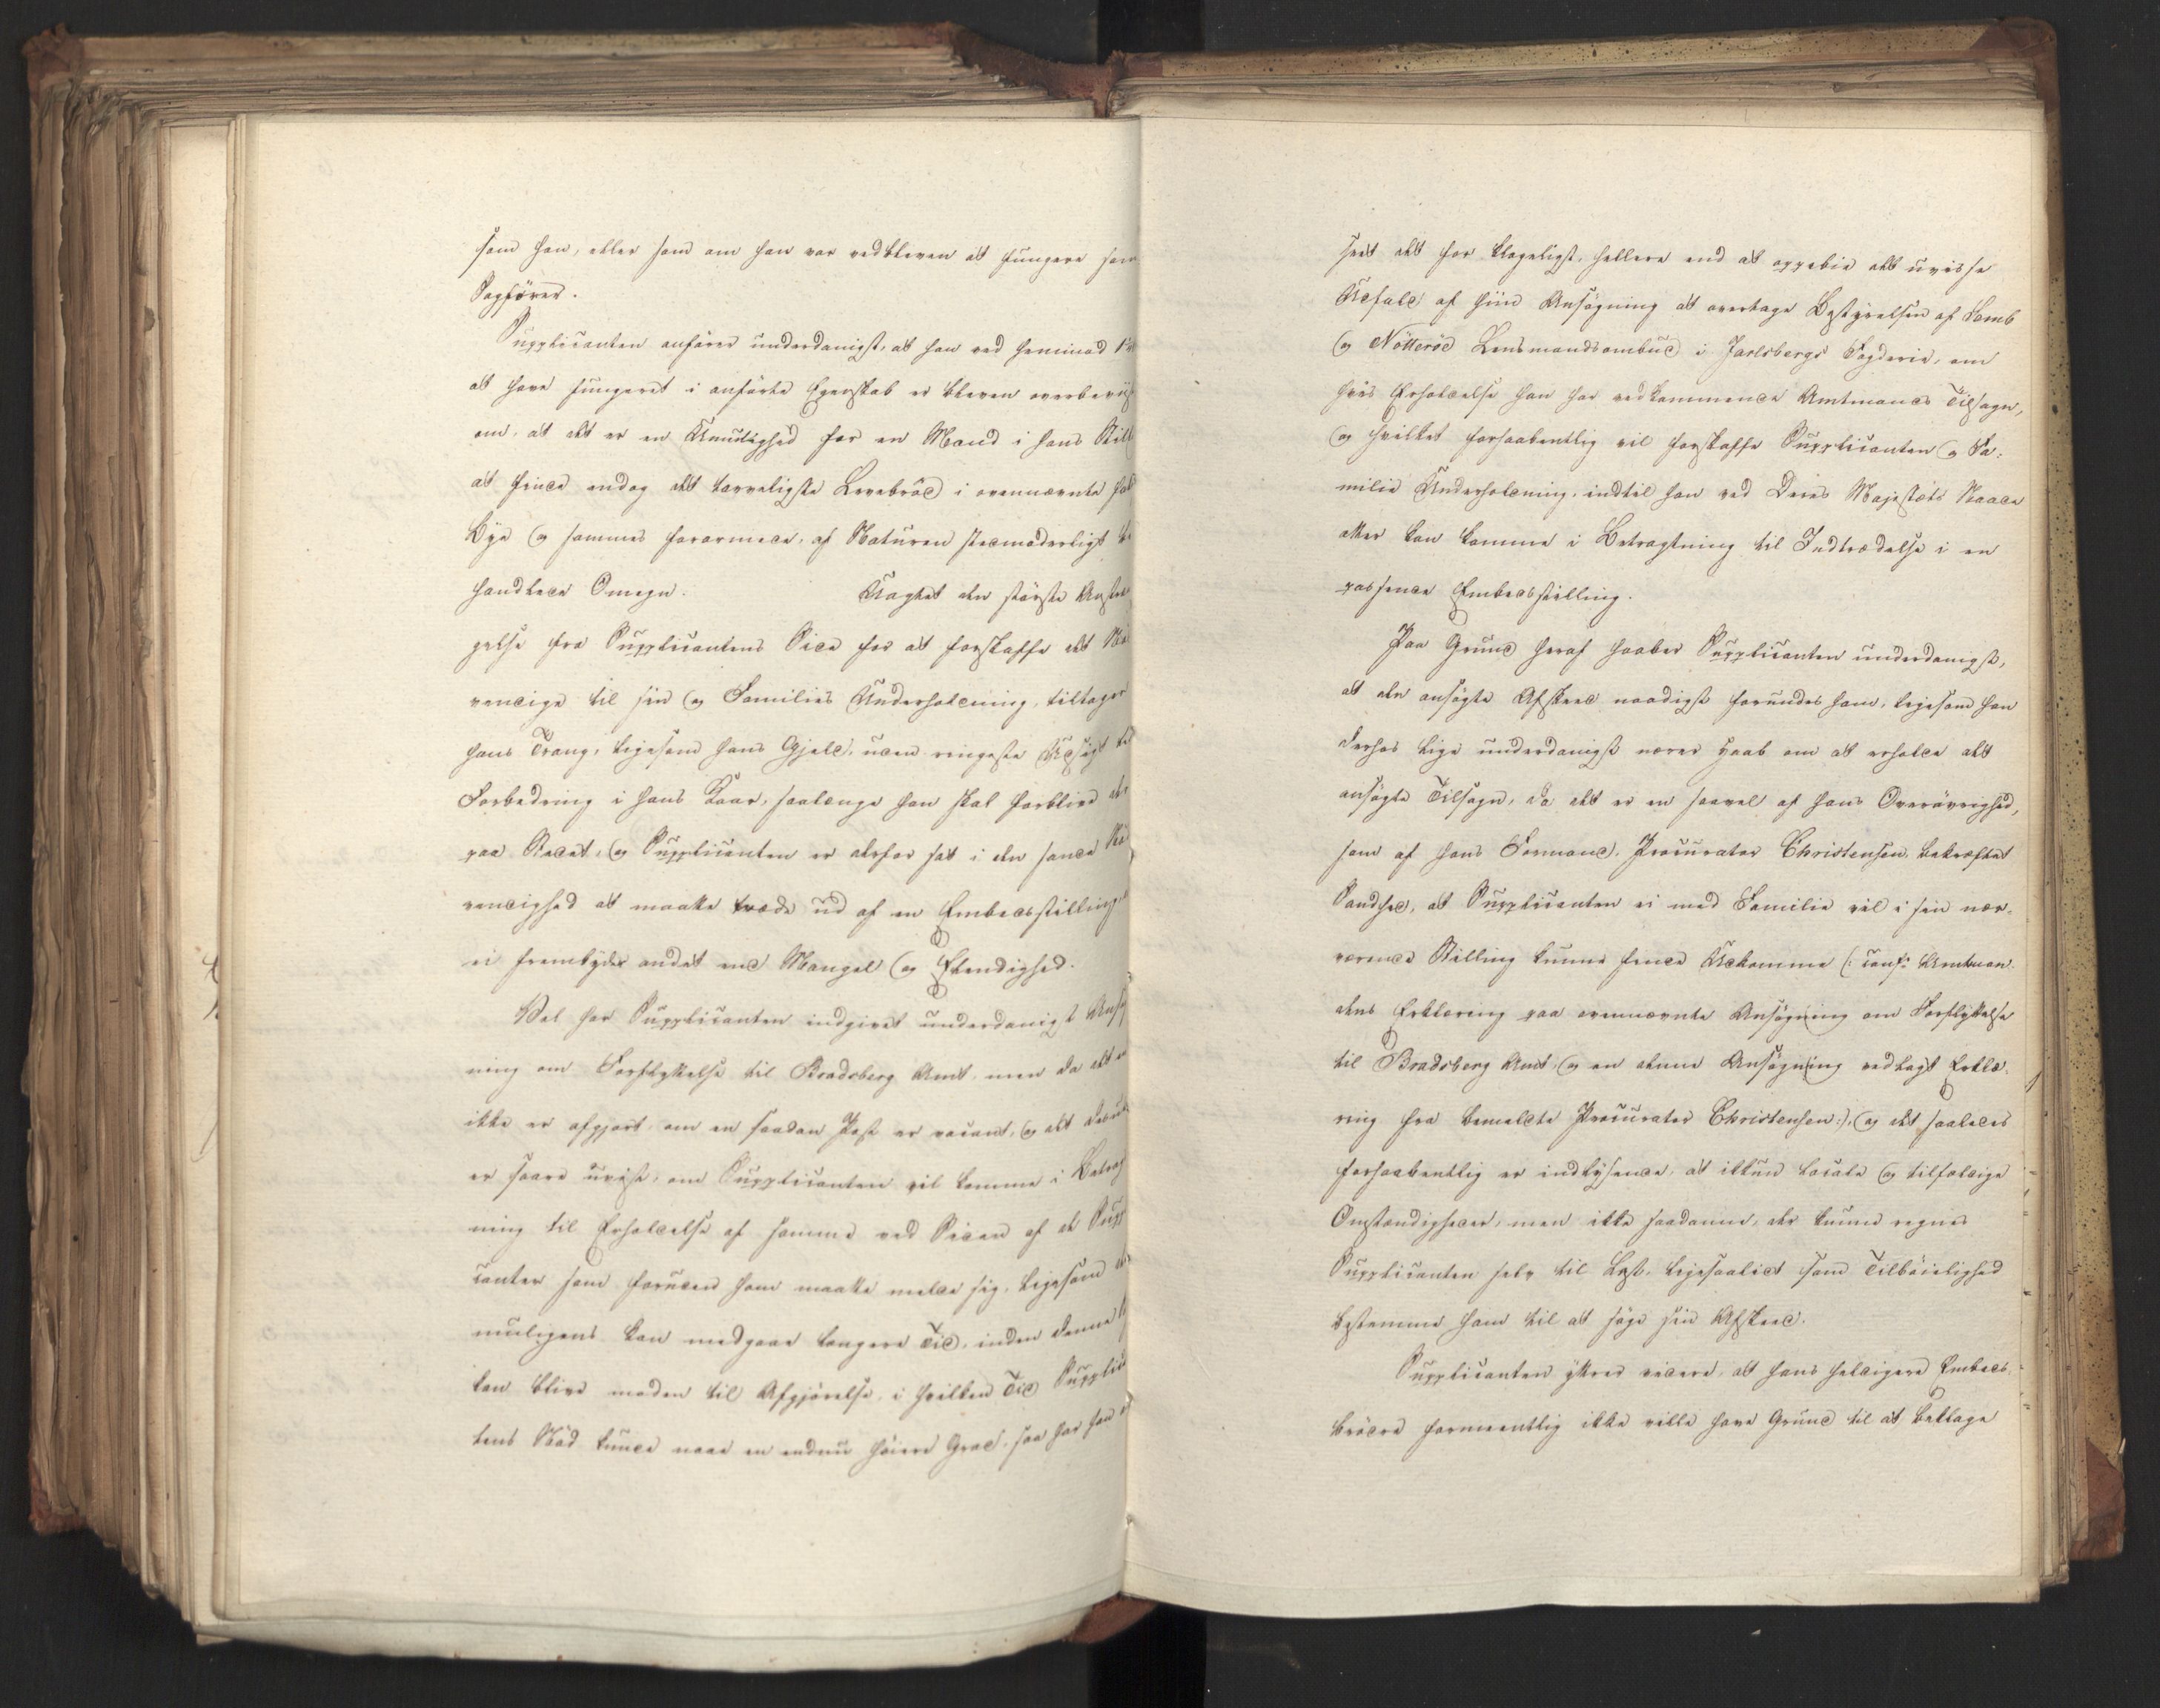 som han, eller som om han var vedbleven at fungere som
Sagfører.
Supplicanten anfører underdanigst, at han ved henimod
at have fungeret i anførte Egenskab er bleven overbeviist
om, at det er en Umulighed for en Mand i hans
at finde endog det tarveligste Levebröd i ovennævnte
Bye og sammes forarmede, af Naturen stedmoderligt be
handlede Omegn. Uagtet den störste Anstræn
gelse fra Supplicantens Side for at forskaffe det Nöd
vendige til sin og Families Underholdning, tiltager
hans Trang, ligesom hans Gjeld, uden ringeste Udsigt til
Forbedring i hans Kaar, saalænge han skal forblive der
paa Stedet, og Supplicanten er derfor sat i den sande Nöd
vendighed at maatte træde ud af en Embedsstilling
ei frembyder andet end Mangel og Elendighed.
Vel har Supplicanten indgivet underdanigst Ansög
ning om Forflyttelse til Bradsberg Amt, men da det ei
ikke er afgjort, om en saadan Post er vacant, og det desuden
er saare uvist, om Supplicanten vil komme i Betragt
ning til Erholdelse af samme ved Siden af de Suppli
canter som foruden ham maatte melde sig, ligesom der
muligens kan medgaae længere Tid, inden denne
kan blive moden til Afgjörelse, i hvilken Tid Supplican
tens Nöd kunde naae en endnu höiere Grad, saa har han
seet det for klogeligst, hellere end at oppebie det uvisse
Udfald af hiin Ansögning at overtage Bestyrelsen af Semb
og Nötteröe Lensmandsombud i Jarlsbergs Fogderie, om
hvis Erholdelse han har vedkommende Amtmands Tilsagn,
og hvilket forhaabentlig vil forskaffe Supplicanten og Fa-
milie Underholdning, indtil han ved Deres Majestæts Naade
atter kan komme i Betragtning til Indtrædelse i en
passende Embedsstilling.
Paa Grund heraf haaber Supplicanten underdanigst,
at den ansögte Afskeed naadigst forundes ham, ligesom han
derhos lige underdanigst nærer Haab om at erholde det
ansögte Tilsagn, da det er en saavel af hans Overövrighed,
som af hans Formand, Procurator Christensen, bekræftet
Sandhed, at Supplicanten ei med Familie vil i sin nær-
værende Stilling kunne finde Udkomme (: conf: Amtman-
dens Erklæring paa ovennævnte Ansögning om Forflyttelse
til Bradsberg Amt, og en denne Ansögning vedlagt Erklæ-
ring fra bemeldte Procurator Christensen :), og det saaledes
forhaabentlig er indlysende, at ikkun locale og tilfældige
Omstændigheder, men ikke saadanne, der kunne regnes
Supplicanten selv til Last, ligesaalidt som Tilböielighed
bestemme ham til at söge sin Afskeed.
Supplicanten yttrer videre, at hans heldigere Embeds-
brödre formeentlig ikke ville have Grund til at beklage